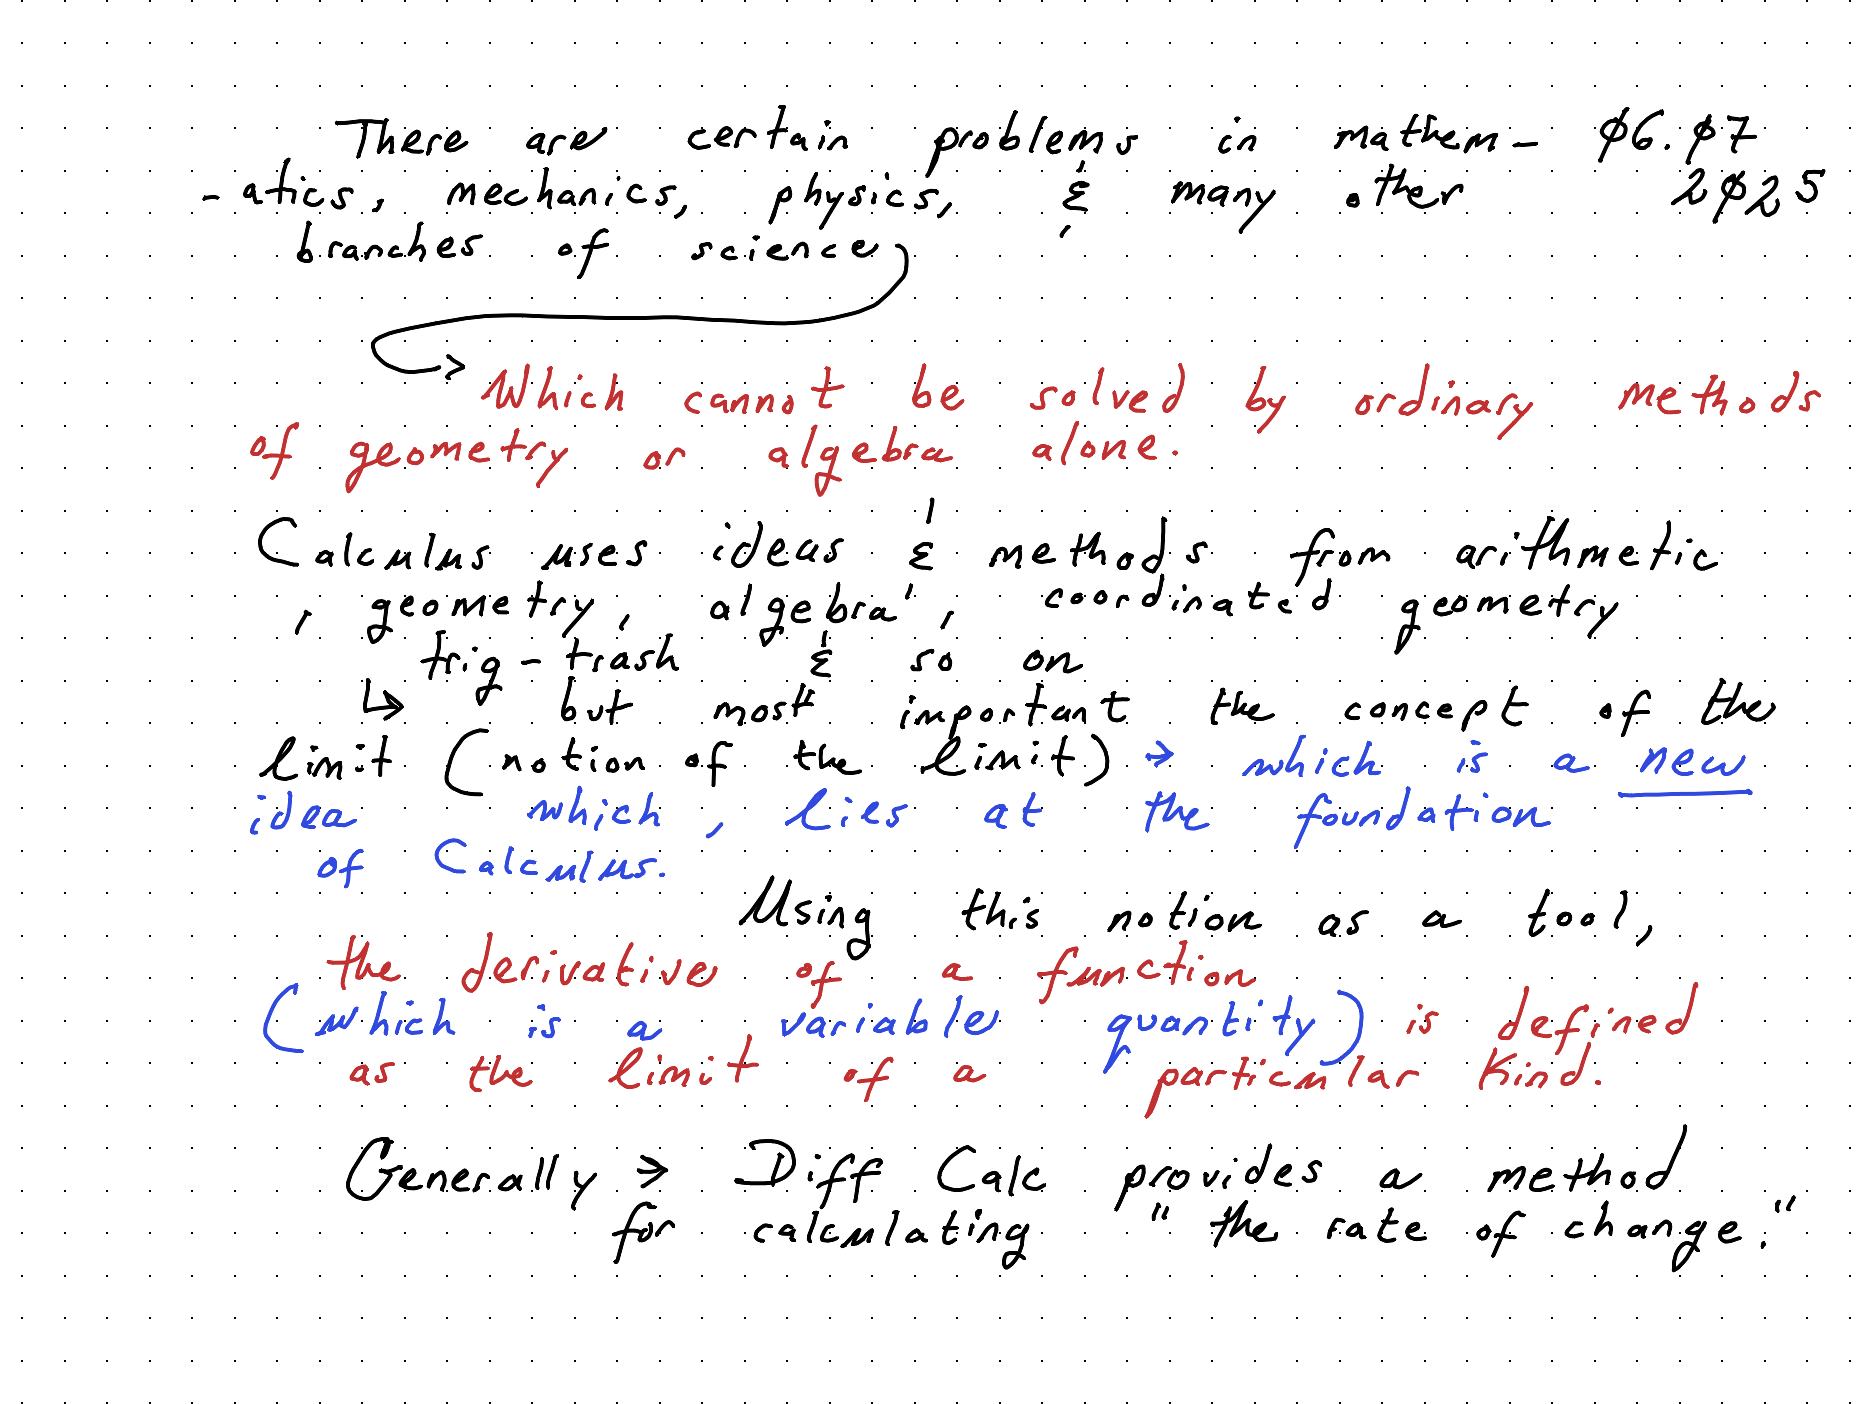 There are certain problems in mathem- Ø6.Ø7
-atics, mechanics, physics, & many other 2Ø25
branches of science
→ Which cannot be solved by ordinary methods
of geometry or algebra alone.
Calculus uses ideas & methods from arithmetic
, geometry, algebra', coordinated geometry
trig-trash & so on
↳ but most important the concept of the
limit (notion of the limit) → which is a new
idea which, lies at the foundation
of Calculus.
Using this notion as a tool,
the derivative of a function
(which is a variable quantity) is defined
as the limit of a particular kind.
Generally → Diff Calc provides a method
for calculating "the rate of change."